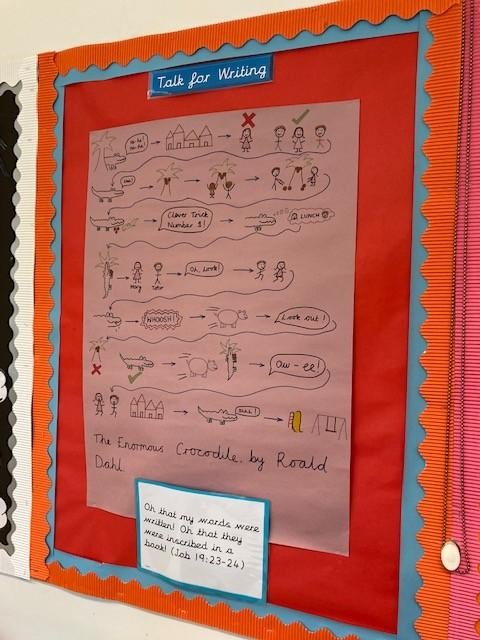 Talk for Writing
Clever Trick
Number 1!
LUNCH
Mary Toto
Oh, Look!
WHOOSH!
Look out!
Ow-ee!
The Enormous Crocodile, by Roald
Dahl.
Oh that my words were
written! Oh that they
were inscribed in a
book! (Job 19:23-24)